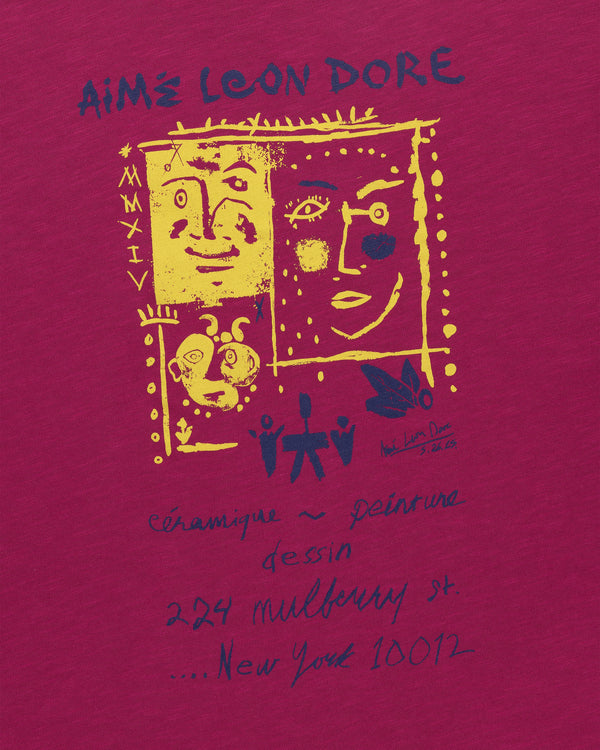 AiMÉ LEON DORE
MMXIV
Leon Dore
céramique ~ peinture
dessin
224 mulberry st.
....New York 10012